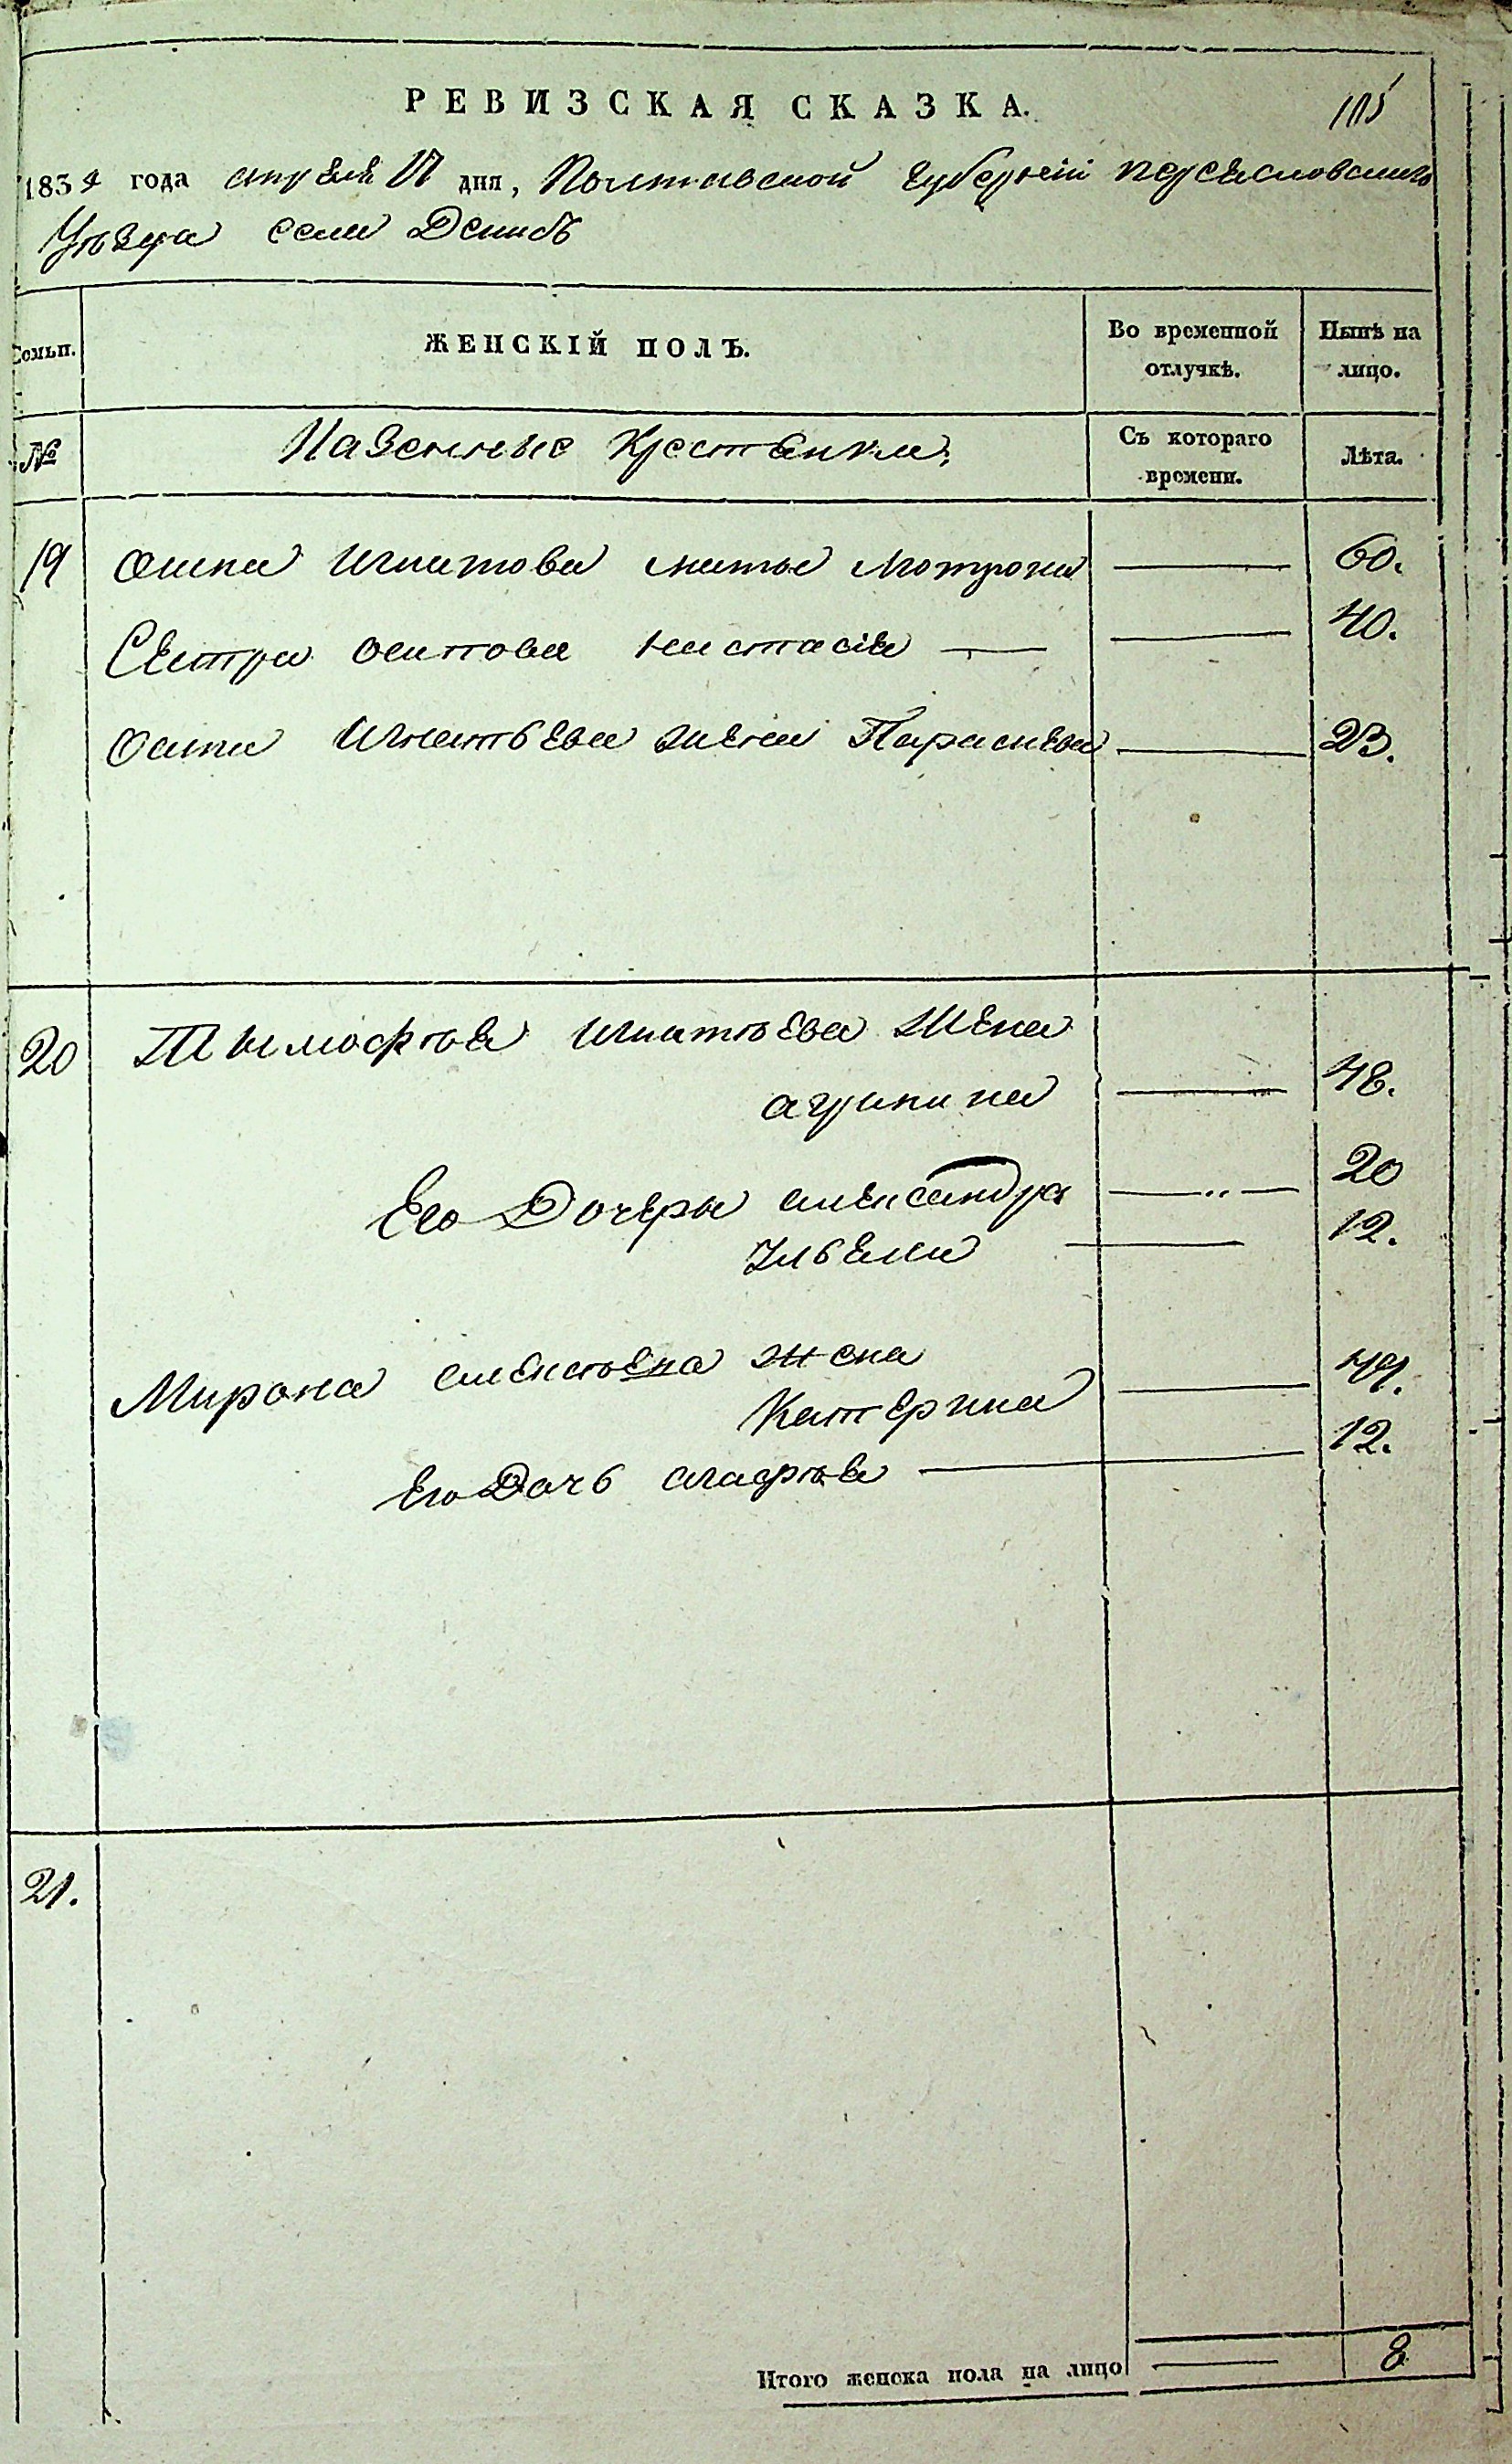 РЕВИЗСКАЯ СКАЗКА.
105
1834 года апреля 17 дня, Полтавской губернии переясловского
Уѣзда села Демокъ
Семьи.
ЖЕНСКІЙ ПОЛЪ.
Во временной отлучкѣ.
Нынѣ на лицо.
№
Казенные Крестянки,
Съ котораго времени.
Лѣта.
19 Осипа Игнатова матье Мотрона — 60.
Сестра осипова настасія — 40.
Осипа Игнатьева жена Параскева — 23.
20 Тымофѣя Игнатьева Жена
агрипина — 48.
Его Дочеры александра — 20
Ульяна — 12.
Мирона жена
Катерина — 49.
Его Дочь агафия — 12.
21.
Итого женска пола на лицо — 8